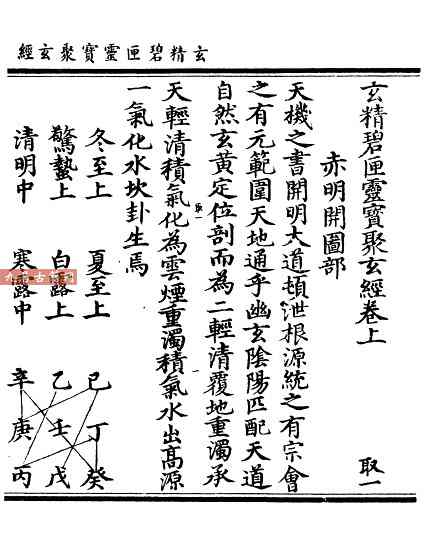 玄精碧匣靈寶聚玄經
玄精碧匣靈寶聚玄經卷上 取一
赤明開圖部
天機之書開明大道頓泄根源統之有宗會
之有元範圍天地通乎幽玄陰陽匹配天道
自然玄黃定位剖而為二輕清覆地重濁承
天輕清積氣化為雲煙重濁積氣水出高源
一氣化水坎卦生焉
冬至上 夏至上 已 丁 癸
驚蟄上 白露上 乙 壬 戊
清明中 寒露中 辛 庚 丙